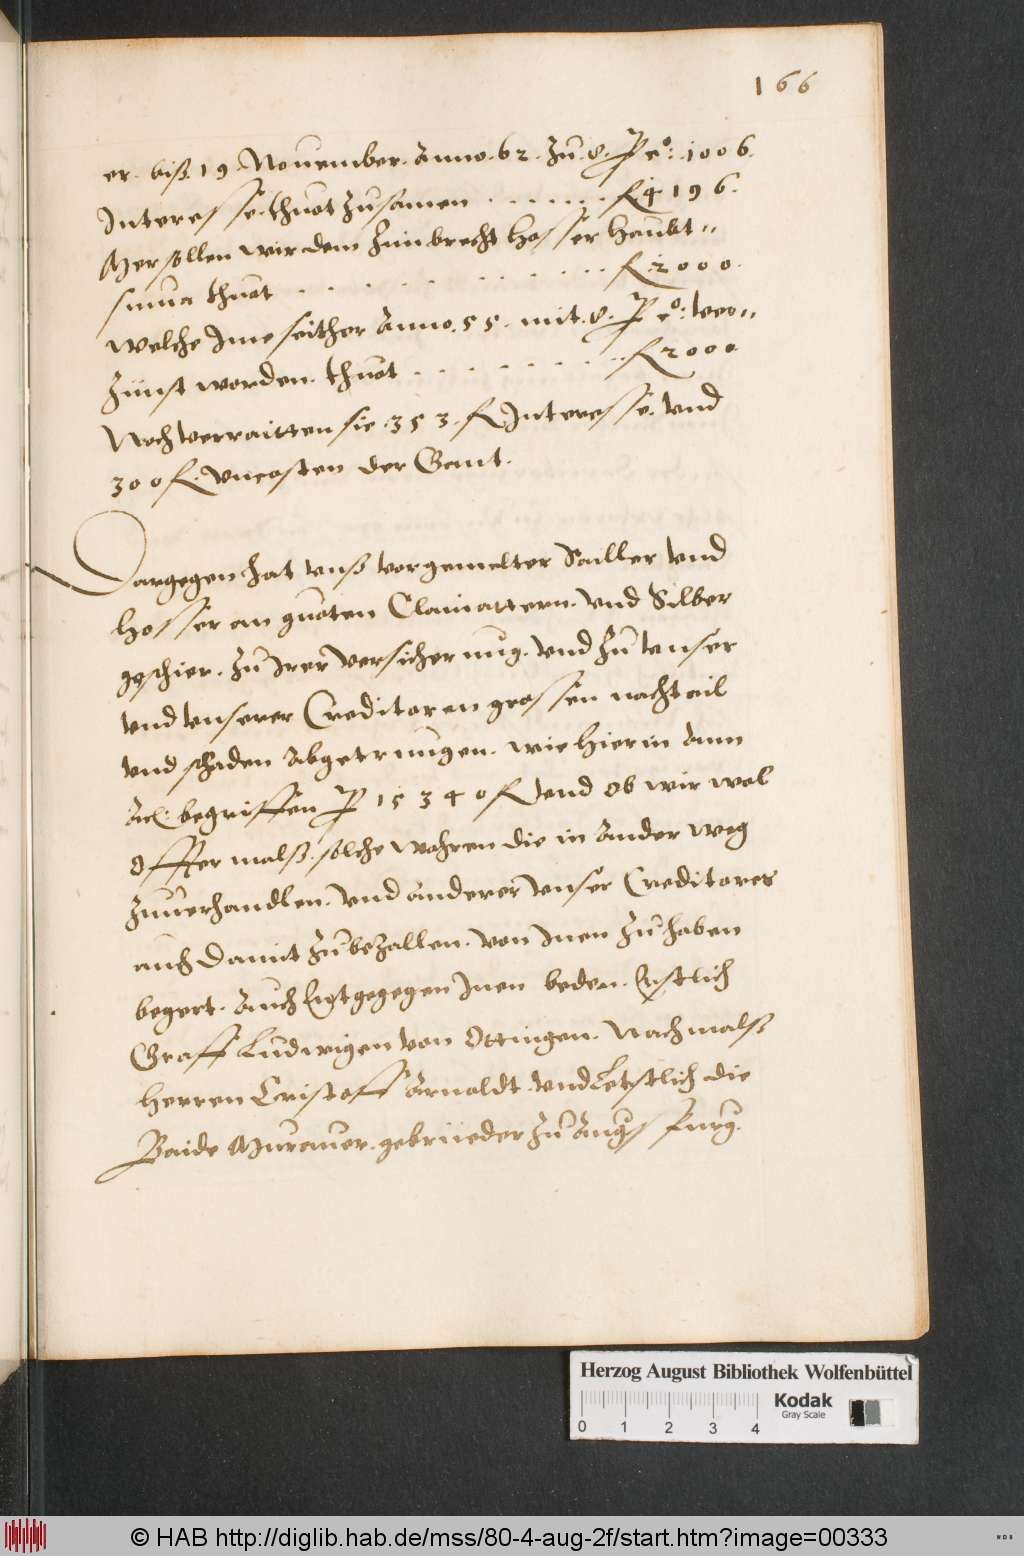 166
er. biß. 19. Nouember. Anno. 62. Zu. 8. P co: 1006.
Interesse. thuot Zusamen . . . . . . . fl 4196.
Mer sollen wir dem Zimbrecht Hosser Haubt"
suma thuot . . . . . . . . fl. 2000.
welche Ime seither Anno. 55. mit. 8. P co: ver"
Zünst worden. thuot . . . . . . . . fl 2000.
Noch verraitten sie. 353. fl Interesse. vnd
300 fl. vncosten der Gant.
Dargegen hat vnß vorgemelter Sailler vnd
Hosser an guoten Clainattern. vnd Silber
gschier. Zu Irer versicherung. vnd Zu vnser
vnd vnserer Creditoren grossen nachtail
vnd schaden Abgetrungen. wie hierin Anm
begriffen P 15340 fl vnd Ob wir wol
Offtermalß. solche wahren die in Ander weg
Zuuerhandlen. vnd anderer vnser Creditores
auch damit Zubezallen. von Inen Zuhaben
begert. Auch entgegegen Inen beden. Erstlich
Graff Ludwigen von Ottingen. Nachmalß
Herren Cristoff Arnoldt. vnd Letstlich die
Baide Murauer. gebrüeder Zu Augspurg.
Herzog August Bibliothek Wolfenbüttel
Kodak
Gray Scale
0 1 2 3 4
© HAB http://diglib.hab.de/mss/80-4-aug-2f/start.htm?image=00333